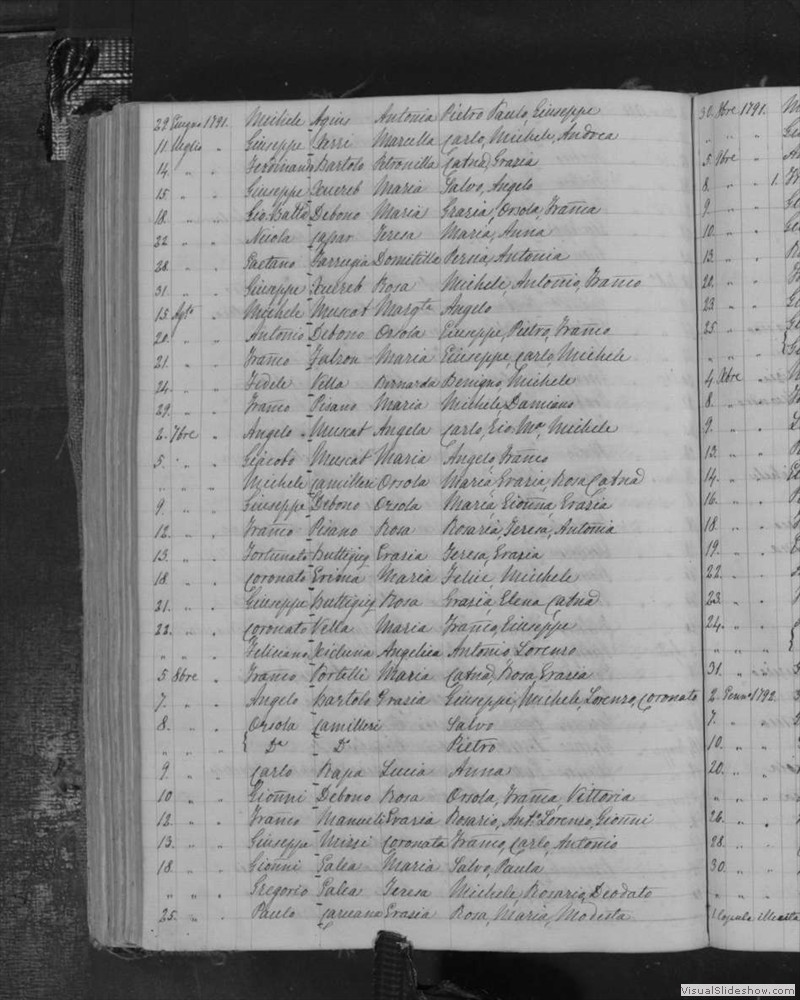 29 Giugno 1791. Michele Agius Antonia Pietro Paulo, Giuseppe
11 Luglio „ Giuseppe Xerri Marcella Carlo, Michele, Andrea
14. „ „ Ferdinando Bartolo Petronilla Catna, Grazia
15. „ „ Giuseppe Xuereb Maria Salvo, Angelo
18. „ „ Gio Batta Debono Maria Grazia, Orsola, Franca
22. „ „ Nicola Capar Teresa Maria, Anna
28. „ „ Gaetano Farrugia Domitilla Teresa, Antonia
31. „ „ Giuseppe Xuereb Rosa Michele, Antonio, Franco
15 Agto „ Michele Muscat Margta Angelo
20. „ „ Antonio Debono Orsola Giuseppe, Pietro, Franco
21. „ „ Franco Falzon Maria Giuseppe, Carlo, Michele
24. „ „ Fidele Vella Bernarda Benigno, Michele
29. „ „ Franco Pisano Maria Michele, Damiano
2. 7bre „ Angelo Muscat Angela Carlo, Gio Ma, Michele
5. „ „ Giacobo Muscat Maria Angelo, Franco
„ „ „ Michele Camilleri Orsola Maria, Grazia, Rosa, Catna
9. „ „ Giuseppe Debono Orsola Maria, Gionna, Grazia
12. „ „ Franco Pisano Rosa Rosaria, Teresa, Antonia
13. „ „ Fortunato Buttigieg Grazia Teresa, Grazia
18. „ „ Coronato Maria Felice, Michele
21. „ „ Giuseppe Buttigieg Rosa Grazia, Elena, Catna
22. „ „ Coronato Vella Maria Franco, Giuseppe
„ „ „ Feliciano Xicluna Angelica Antonio, Lorenzo
5 8bre „ Franco Portelli Maria Catna, Rosa, Grazia
7. „ „ Angelo Bartolo Grazia Giuseppe, Michele, Lorenzo, Coronato
8. „ „ Orsola Camilleri Salvo
„ „ „ { Da Da Pietro
9. „ „ Carlo Rapa Lucia Anna
10 „ „ Gionni Debono Rosa Orsola, Franca, Vittoria
12. „ „ Franco Grazia Rosario, Anto, Lorenzo, Gionni
13. „ „ Giuseppe Mizzi Coronata Franco, Carlo, Antonio
18. „ „ Gionni Galea Maria Salvo, Paula
„ „ „ Gregorio Galea Teresa Michele, Rosario, Deodato
25. „ „ Paulo Caruana Grazia Rosa, Maria, Modesta
30. 8bre 1791.
„ „ „
5. 9bre „
8. „ „ 1.
9. „ „
10. „ „
13. „ „
20. „ „
23. „ „
25. „ „
„ „ „
4 Xbre „
8. „ „
9. „ „
12. „ „
14. „ „
16. „ „
18. „ „
19. „ „
22. „ „
23. „ „
24. „ „
„ „ „ {
31. „ „
2. Genno 1792.
7. „ „
10. „ „
20. „ „
„ „ „
26. „ „
28. „ „
30. „ „
„ „ „
VisualSlideshow.com